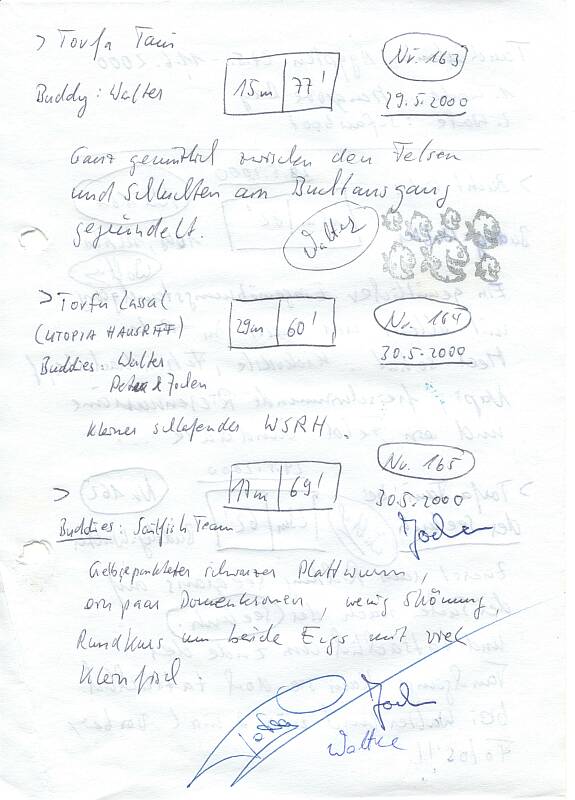 > Torfa Tam
Nr. 163
Buddy: Walter
15m | 77'
29.5.2000
Ganz gemütlich zwischen den Felsen
und Schluchten am Buchtausgang
gegründelt.
Walter
> Torfa Lassal
(UTOPIA HAUSRIFF)
29m | 60'
Nr. 164
30.5.2000
Buddies: Walter
Petra & Jochen
Kleiner schlafender WSRH.
>
17m | 69'
Nr. 165
30.5.2000
Buddies: Sailfish Team
Jochen
Gelbgepunkteter schwarzer Plattwurm,
ein paar Dornenkronen, wenig Strömung,
Rundkurs um beide Ergs mit viel
Kleinfisch.
Petra
Jochen
Walter